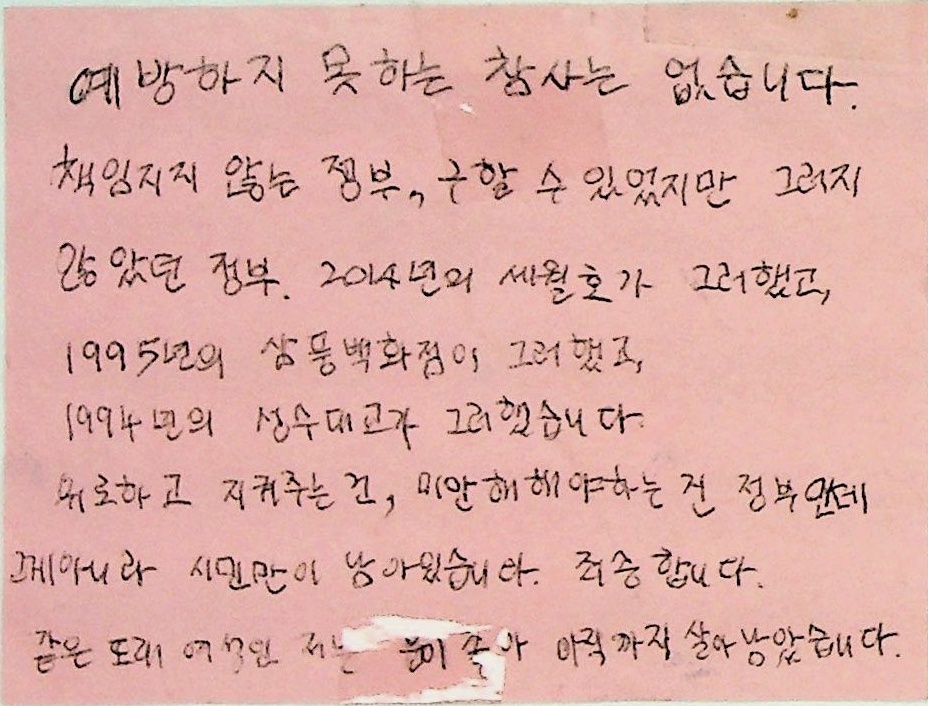 예방하지 못하는 참사는 없습니다.
책임지지 않는 정부, 구할 수 있었지만 그러지
않았던 정부. 2014년의 세월호가 그러했고,
1995년의 삼풍백화점이 그러했고,
1994년의 성수대교가 그러했습니다.
위로하고 지켜주는 건, 미안해해야하는 건 정부인데
그게아니라 시민만이 남아있습니다. 죄송합니다.
같은 또래 여성인 저는 운이 좋아 아직까지 살아남았습니다.